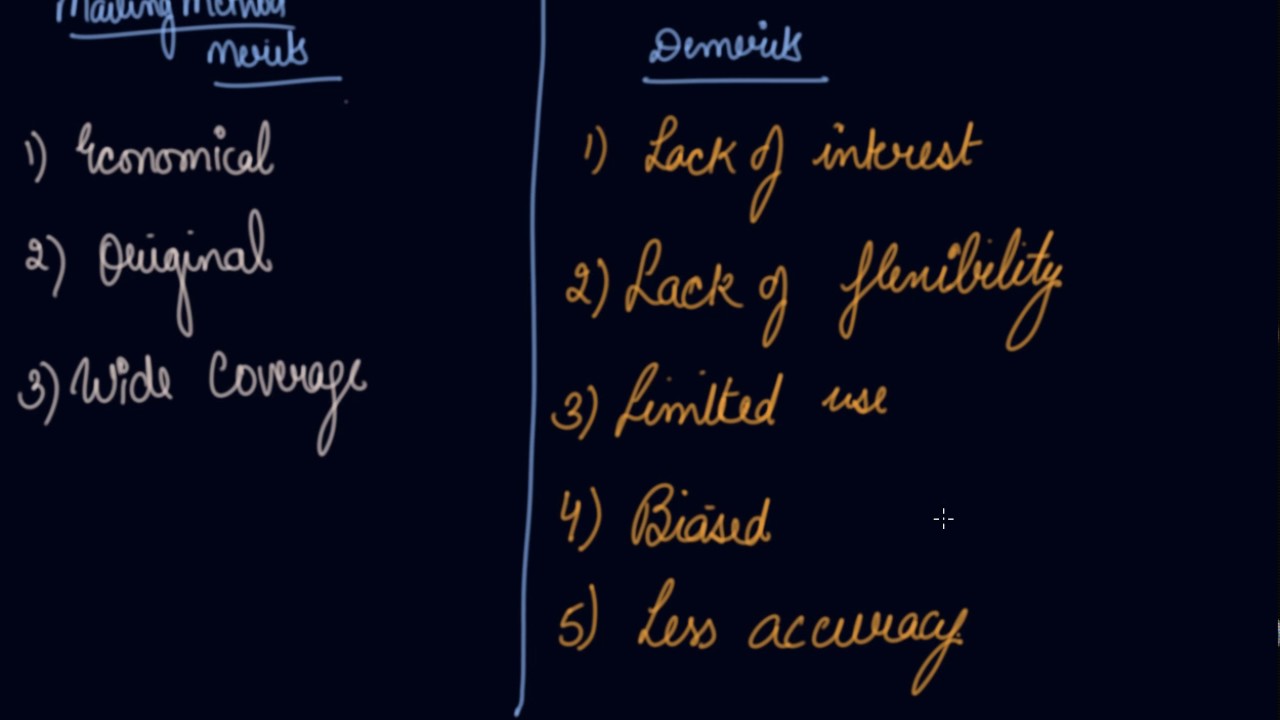 Mailing Method
Merits
1) Economical
2) Original
3) Wide Coverage
Demerits
1) Lack of interest
2) Lack of flexibility
3) Limited use
4) Biased
5) Less accuracy